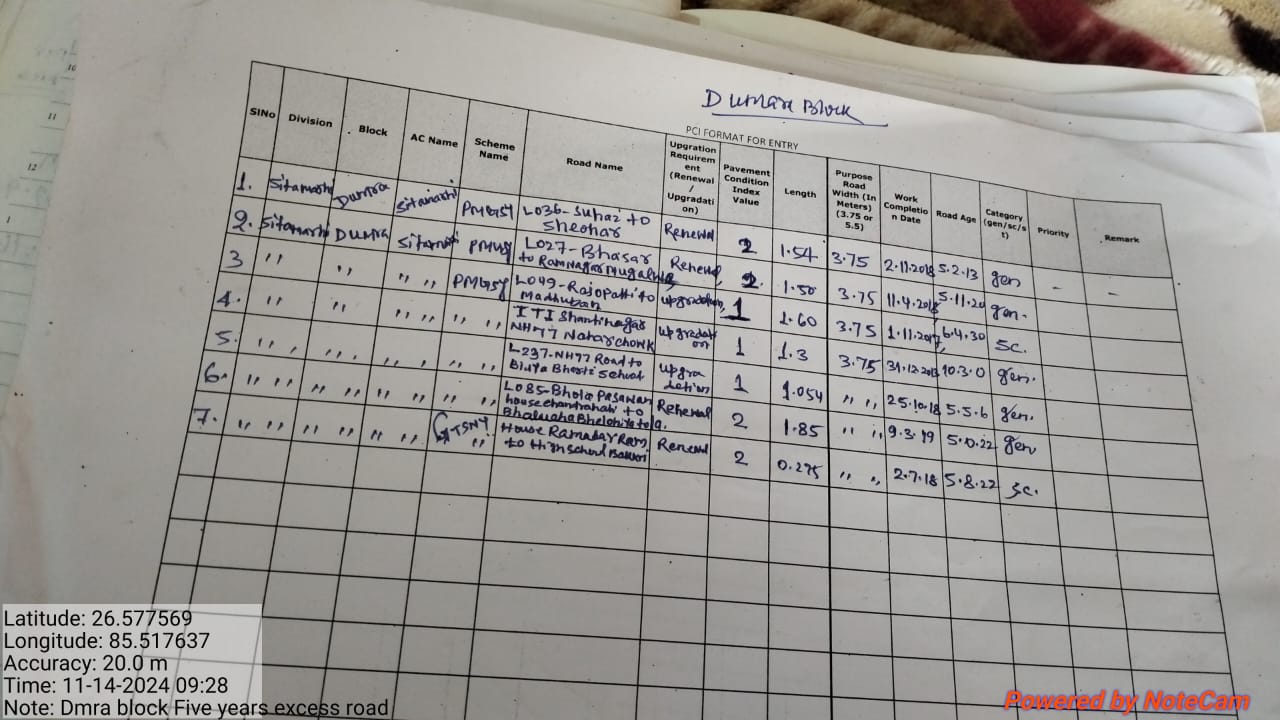 Dumra Block
PCI FORMAT FOR ENTRY
SlNo Division Block AC Name Scheme Name Road Name Upgration Requirem ent (Renewal / Upgradati on) Pavement Condition Index Value Length Purpose Road Width (In Meters) (3.75 or 5.5) Work Completio n Date Road Age Category (gen/sc/s t) Priority Remark
1. Sitamarhi Dumra Sitamarhi PMGSY L036-Suhai to Sheohar Renewal 2 1.54 3.75 2.11.2018 5.2.13 gen - -
2. Sitamarhi Dumra Sitamarhi PMGSY L027-Bhasar to Ramnagar Renewal 2 1.50 3.75 11.4.2018 5.11.20 gen.
3 " " " " PMGSY L049-Rajopatti to Madhuban upgradation 1 1.60 3.75 1.11.2017 6.4.30 SC.
4. " " " " " " ITI Shantinagar NH77 Naharchowk upgradati on 1 1.3 3.75 31.12.2013 10.3.0 gen.
5. " " " " " " L237-NH77 Road to School upgra dation 1 1.054 " " 25.10.18 5.5.6 gen.
6. " " " " " " " " L085-Bhola Pasawan house chandrahati to Renewal 2 1.85 " " 9.3.19 5.10.22 gen
7. " " " " " " GTSNY " House Ramadar Ram to High school Renewal 2 0.275 " " 2.7.18 5.8.22 SC.
10
11
12
1
Latitude: 26.577569
Longitude: 85.517637
Accuracy: 20.0 m
Time: 11-14-2024 09:28
Note: Dmra block Five years excess road
Powered by NoteCam